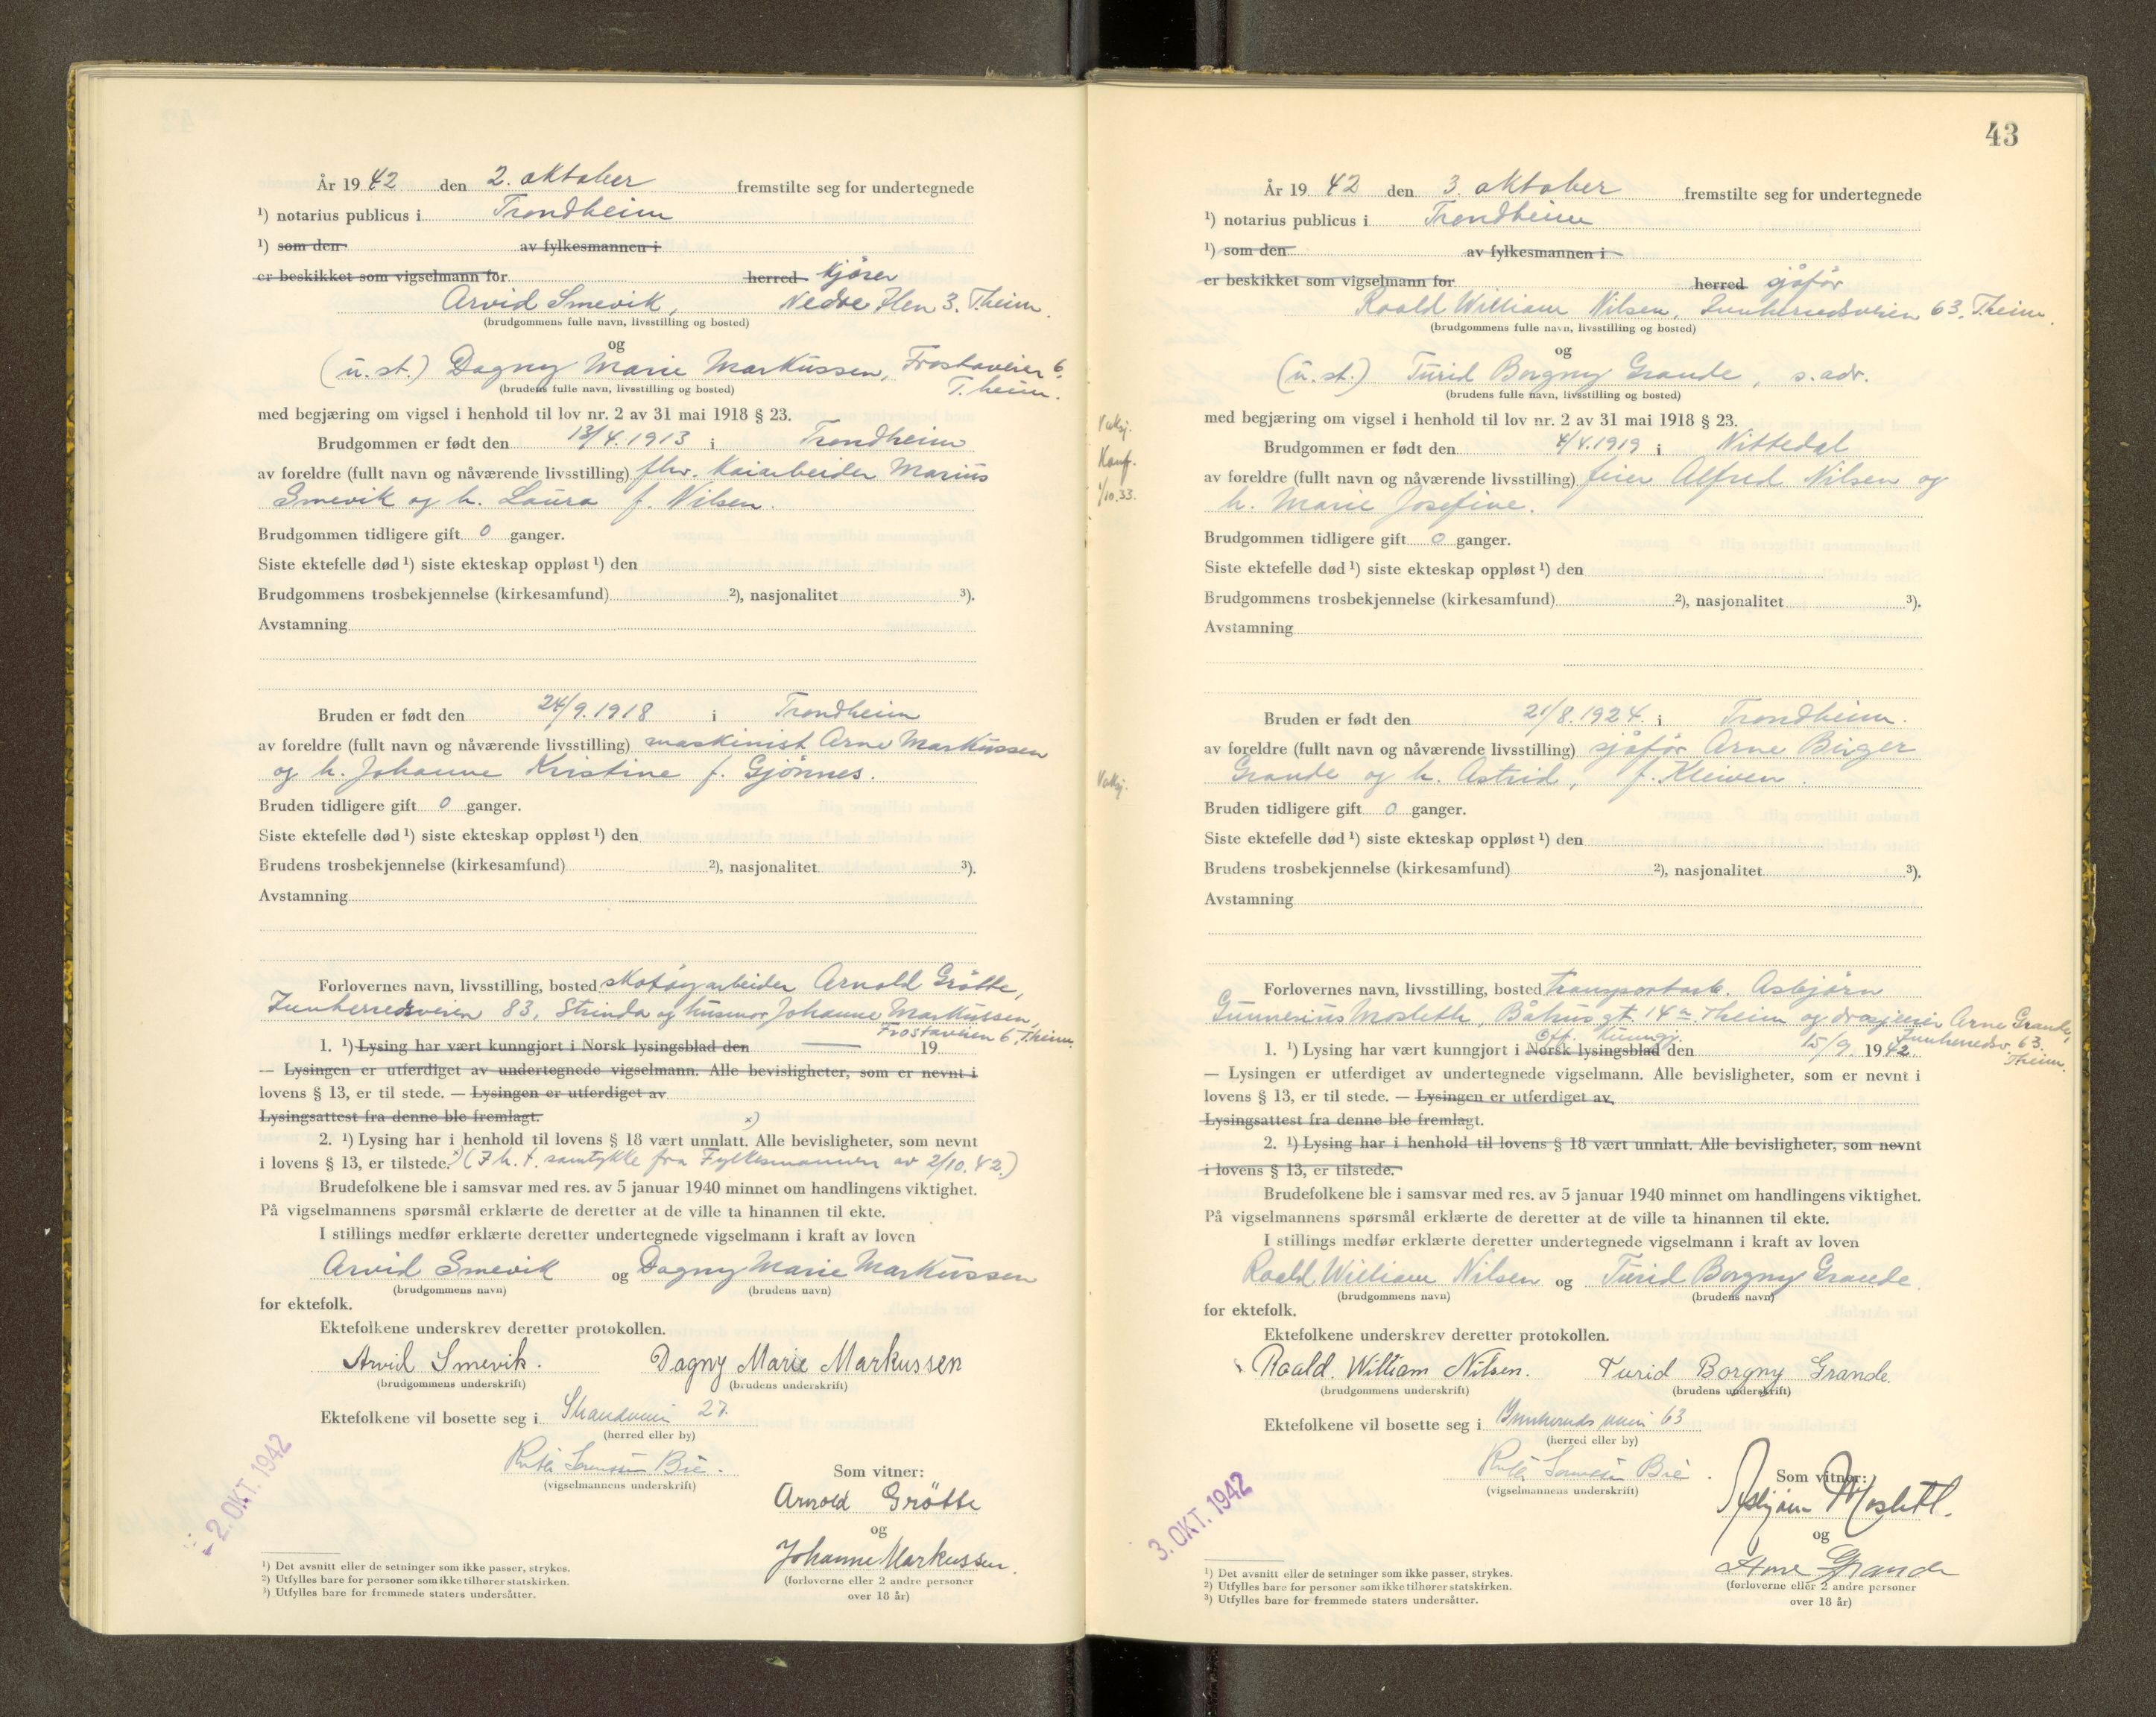 År 19 42 den 2. oktober fremstilte seg for undertegnede
¹) notarius publicus i Trondheim
¹) som den av fylkesmannen i
er beskikket som vigselmann for herred kjører
Arvid Smevik, Nedre Ilen 3. T.heim.
(brudgommens fulle navn, livsstilling og bosted)
og
(u. st.) Dagny Marie Markussen, Frostaveien 6,
T.heim.
(brudens fulle navn, livsstilling og bosted)
med begjæring om vigsel i henhold til lov nr. 2 av 31 mai 1918 § 23.
Brudgommen er født den 13/4. 1913 i Trondheim
av foreldre (fullt navn og nåværende livsstilling) fhv. kaiarbeider Marius
Smevik og h. Laura f. Nilsen.
Brudgommen tidligere gift 0 ganger.
Siste ektefelle død ¹) siste ekteskap oppløst ¹) den
Brudgommens trosbekjennelse (kirkesamfund) ²), nasjonalitet ³).
Avstamning
Bruden er født den 24/9. 1918 i Trondheim
av foreldre (fullt navn og nåværende livsstilling) maskinist Arne Markussen
og h. Johanne Kristine f. Gjønnes.
Bruden tidligere gift 0 ganger.
Siste ektefelle død ¹) siste ekteskap oppløst ¹) den
Brudens trosbekjennelse (kirkesamfund) ²), nasjonalitet ³).
Avstamning
Forlovernes navn, livsstilling, bosted skotøyarbeider Arnold Grøtte,
Innherredsveien 83, Strinda og husmor Johanne Markussen,
Frostaveien 6, T.heim.
1. ¹) Lysing har vært kunngjort i Norsk lysingsblad den 19
— Lysingen er utferdiget av undertegnede vigselmann. Alle bevisligheter, som er nevnt i
lovens § 13, er til stede. — Lysingen er utferdiget av
Lysingsattest fra denne ble fremlagt. x)
2. ¹) Lysing har i henhold til lovens § 18 vært unnlatt. Alle bevisligheter, som nevnt
i lovens § 13, er tilstede. x) (I h. t. samtykke fra Fylkesmannen av 2/10. 42.)
Brudefolkene ble i samsvar med res. av 5 januar 1940 minnet om handlingens viktighet.
På vigselmannens spørsmål erklærte de deretter at de ville ta hinannen til ekte.
I stillings medfør erklærte deretter undertegnede vigselmann i kraft av loven
Arvid Smevik og Dagny Marie Markussen
(brudgommens navn) (brudens navn)
for ektefolk.
Ektefolkene underskrev deretter protokollen.
Arvid Smevik. Dagny Marie Markussen
(brudgommens underskrift) (brudens underskrift)
Ektefolkene vil bosette seg i Strandveien 27.
(herred eller by)
Ruth Sørensen Bie.
(vigselmannens underskrift)
- 2. OKT. 1942
Som vitner:
Arnold Grøtte
og
Johanne Markussen.
(forloverne eller 2 andre personer
over 18 år)
¹) Det avsnitt eller de setninger som ikke passer, strykes.
²) Utfylles bare for personer som ikke tilhører statskirken.
³) Utfylles bare for fremmede staters undersåtter.
43
År 19 42 den 3. oktober fremstilte seg for undertegnede
¹) notarius publicus i Trondheim
¹) som den av fylkesmannen i
er beskikket som vigselmann for herred sjåfør
Roald William Nilsen, Innherredsveien 63, T.heim.
(brudgommens fulle navn, livsstilling og bosted)
og
(u. st.) Turid Borgny Grande, s. adr.
(brudens fulle navn, livsstilling og bosted)
med begjæring om vigsel i henhold til lov nr. 2 av 31 mai 1918 § 23.
Vaksj.
Konf.
1/10.33.
Brudgommen er født den 4/4. 1919 i Nittedal
av foreldre (fullt navn og nåværende livsstilling) feier Alfred Nilsen og
h. Marie Josefine.
Brudgommen tidligere gift 0 ganger.
Siste ektefelle død ¹) siste ekteskap oppløst ¹) den
Brudgommens trosbekjennelse (kirkesamfund) ²), nasjonalitet ³).
Avstamning
Bruden er født den 21/8. 1924. i Trondheim.
av foreldre (fullt navn og nåværende livsstilling) sjåfør Arne Birger
Vaksj.
Grande og h. Astrid, f. Kleiven.
Bruden tidligere gift 0 ganger.
Siste ektefelle død ¹) siste ekteskap oppløst ¹) den
Brudens trosbekjennelse (kirkesamfund) ²), nasjonalitet ³).
Avstamning
Forlovernes navn, livsstilling, bosted transportarb. Asbjørn
Gunnerius Mosleth, Båhus gt. 14 a. T.heim og drosjeeier Arne Grande,
Innherredsv. 63.
T.heim.
Off. kunngj.
1. ¹) Lysing har vært kunngjort i Norsk lysingsblad den 15/9. 19 42.
— Lysingen er utferdiget av undertegnede vigselmann. Alle bevisligheter, som er nevnt i
lovens § 13, er til stede. — Lysingen er utferdiget av
Lysingsattest fra denne ble fremlagt.
2. ¹) Lysing har i henhold til lovens § 18 vært unnlatt. Alle bevisligheter, som nevnt
i lovens § 13, er tilstede.
Brudefolkene ble i samsvar med res. av 5 januar 1940 minnet om handlingens viktighet.
På vigselmannens spørsmål erklærte de deretter at de ville ta hinannen til ekte.
I stillings medfør erklærte deretter undertegnede vigselmann i kraft av loven
Roald William Nilsen og Turid Borgny Grande.
(brudgommens navn) (brudens navn)
for ektefolk.
Ektefolkene underskrev deretter protokollen.
Roald. William Nilsen. Turid Borgny Grande.
(brudgommens underskrift) (brudens underskrift)
Ektefolkene vil bosette seg i Innherredsveien 63
(herred eller by)
Ruth Sørensen Bie.
(vigselmannens underskrift)
3. OKT. 1942
Som vitner:
Asbjørn Mosleth.
og
Arne Grande
(forloverne eller 2 andre personer
over 18 år)
¹) Det avsnitt eller de setninger som ikke passer, strykes.
²) Utfylles bare for personer som ikke tilhører statskirken.
³) Utfylles bare for fremmede staters undersåtter.